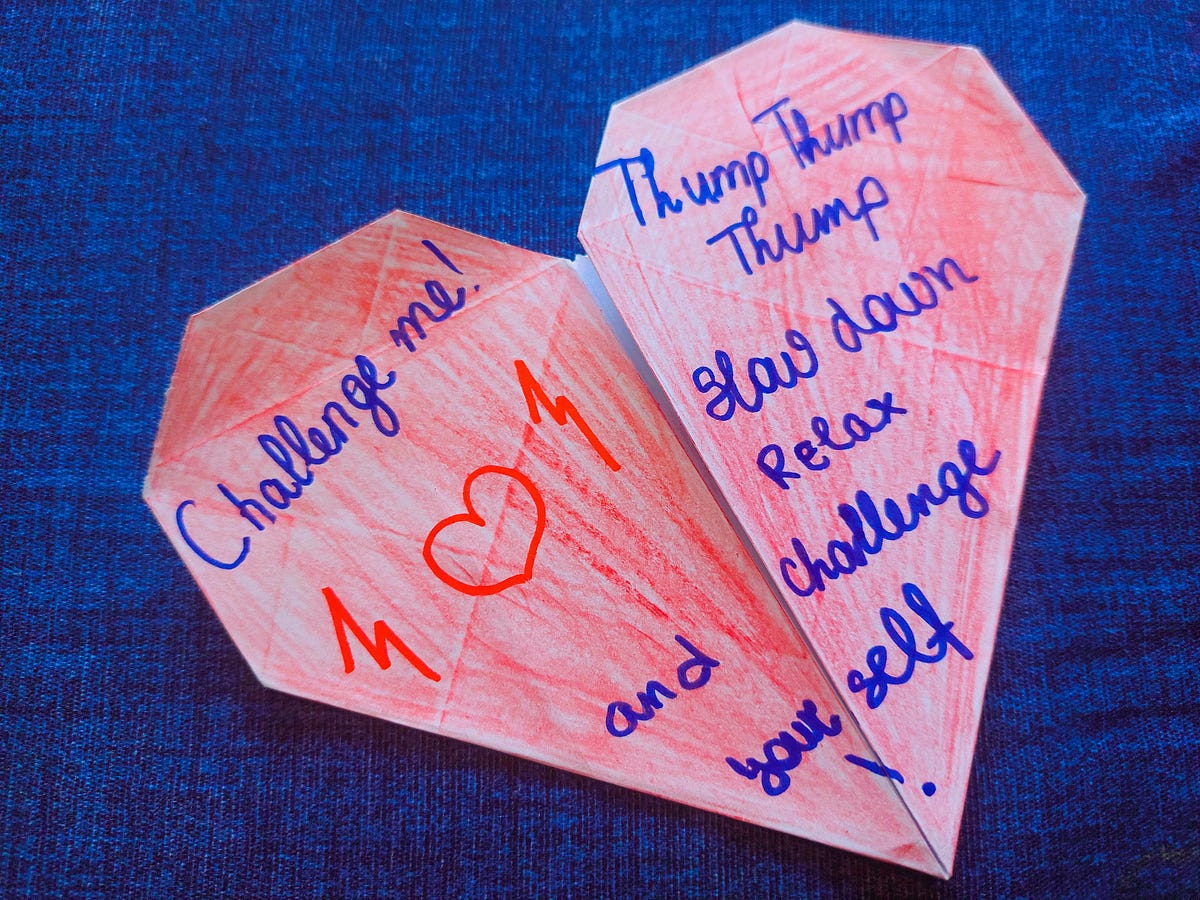 Challenge me!
Thump Thump
Thump
Slow down
Relax
challenge
and your self!